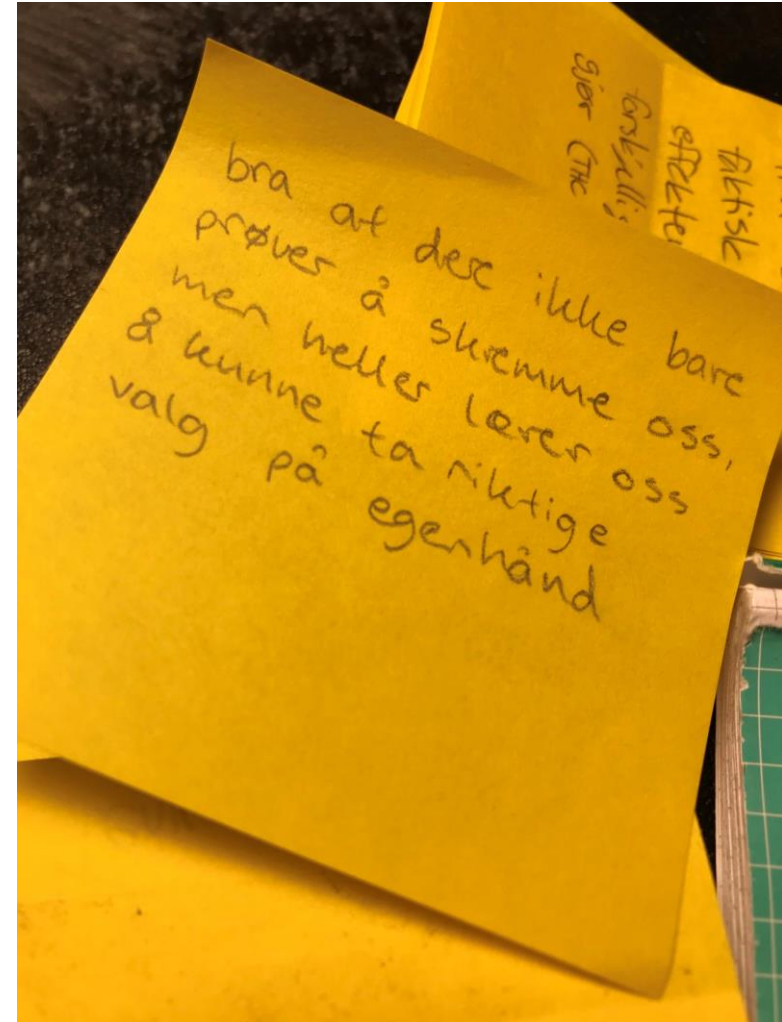 bra at dere ikke bare
prøver å skremme oss,
men heller lærer oss
å kunne ta riktige
valg på egenhånd
faktisk
effekter
forskjellig
gjør (THC